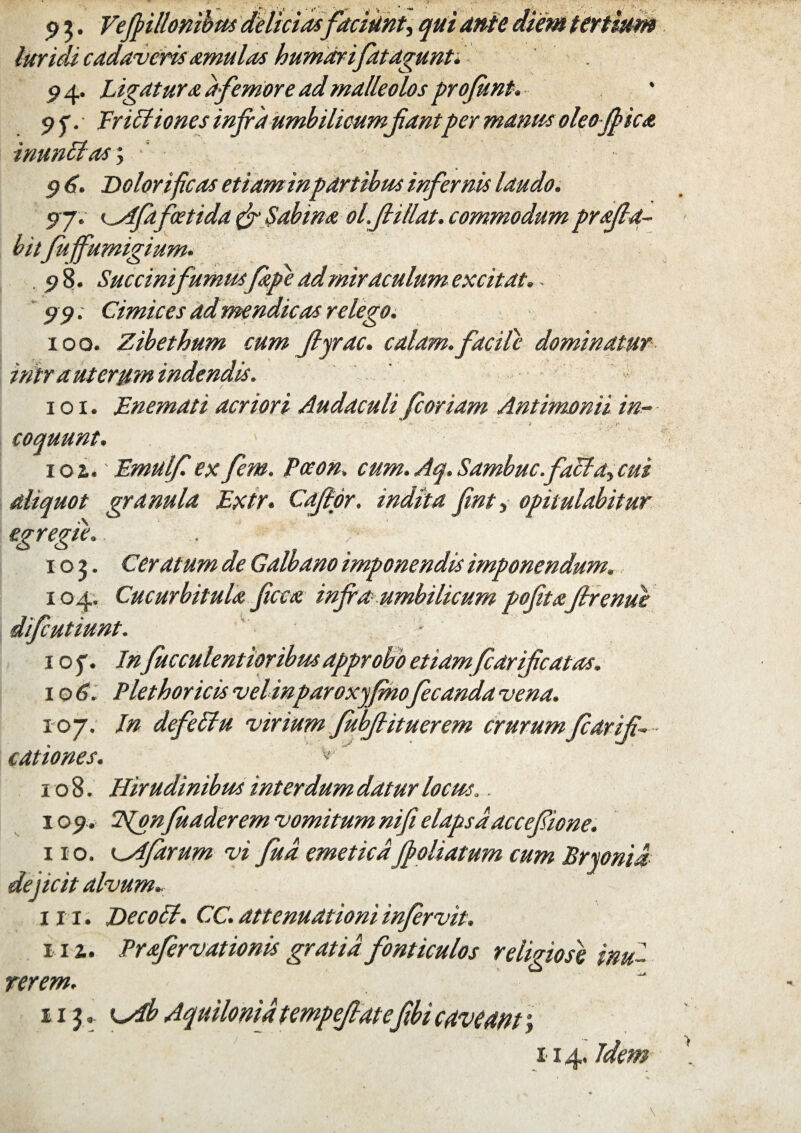 93. Veſpillonibus delicias faciunt, qui ante diem tertium
luridi cadaveris æmulas humari ſatagunt.
94. Ligaturæ à femore ad malleolos proſunt.
95. Frictiones infrà umbilicum fiant per manus oleo ſpicæ
inunctas;
96. Dolorificas etiam in partibus infernis laudo.
97. Aſa fœtida & Sabinæ ol. ſtillat. commodum præſta-
bit ſuffumigium.
98. Succini fumus ſæpè ad miraculum excitat.
99. Cimices ad mendicas relego.
100. Zibethum cum ſtyrac. calam. facilè dominatur
intra uterum indendis.
101. Enemati acriori Audaculi ſcoriam Antimonii in-
coquunt.
102. Emulſ. ex ſem. Pœon. cum. Aq. Sambuc. facta, cui
aliquot granula Extr. Caſtor. indita ſint, opitulabitur
egregiè.
103. Ceratum de Galbano imponendis imponendum.
104. Cucurbitulæ ſiccæ infra umbilicum poſitæ ſtrenuè
diſcutiunt.
105. In ſucculentioribus approbo etiam ſcarificatas.
106. Plethoricis vel in paroxyſmo ſecanda vena.
107. In defectu virium ſubſtituerem crurum ſcarifi-
cationes.
108. Hirudinibus interdum datur locus.
109. Non ſuaderem vomitum niſi elapsâ acceſſione.
110. Aſarum vi ſuâ emeticâ ſpoliatum cum Bryoniâ
dejicit alvum.
111. Decoct. CC. attenuationi inſervit.
112. Præſervationis gratiâ fonticulos religiosè inu-
rerem.
113. Ab Aquiloniâ tempeſtate ſibi caveant;
114. Idem